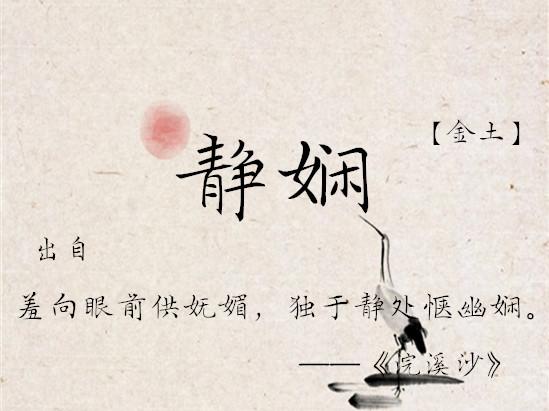 【金土】
静娴
出自
羞向眼前供妩媚，独于静处惬幽娴。
——《浣溪沙》